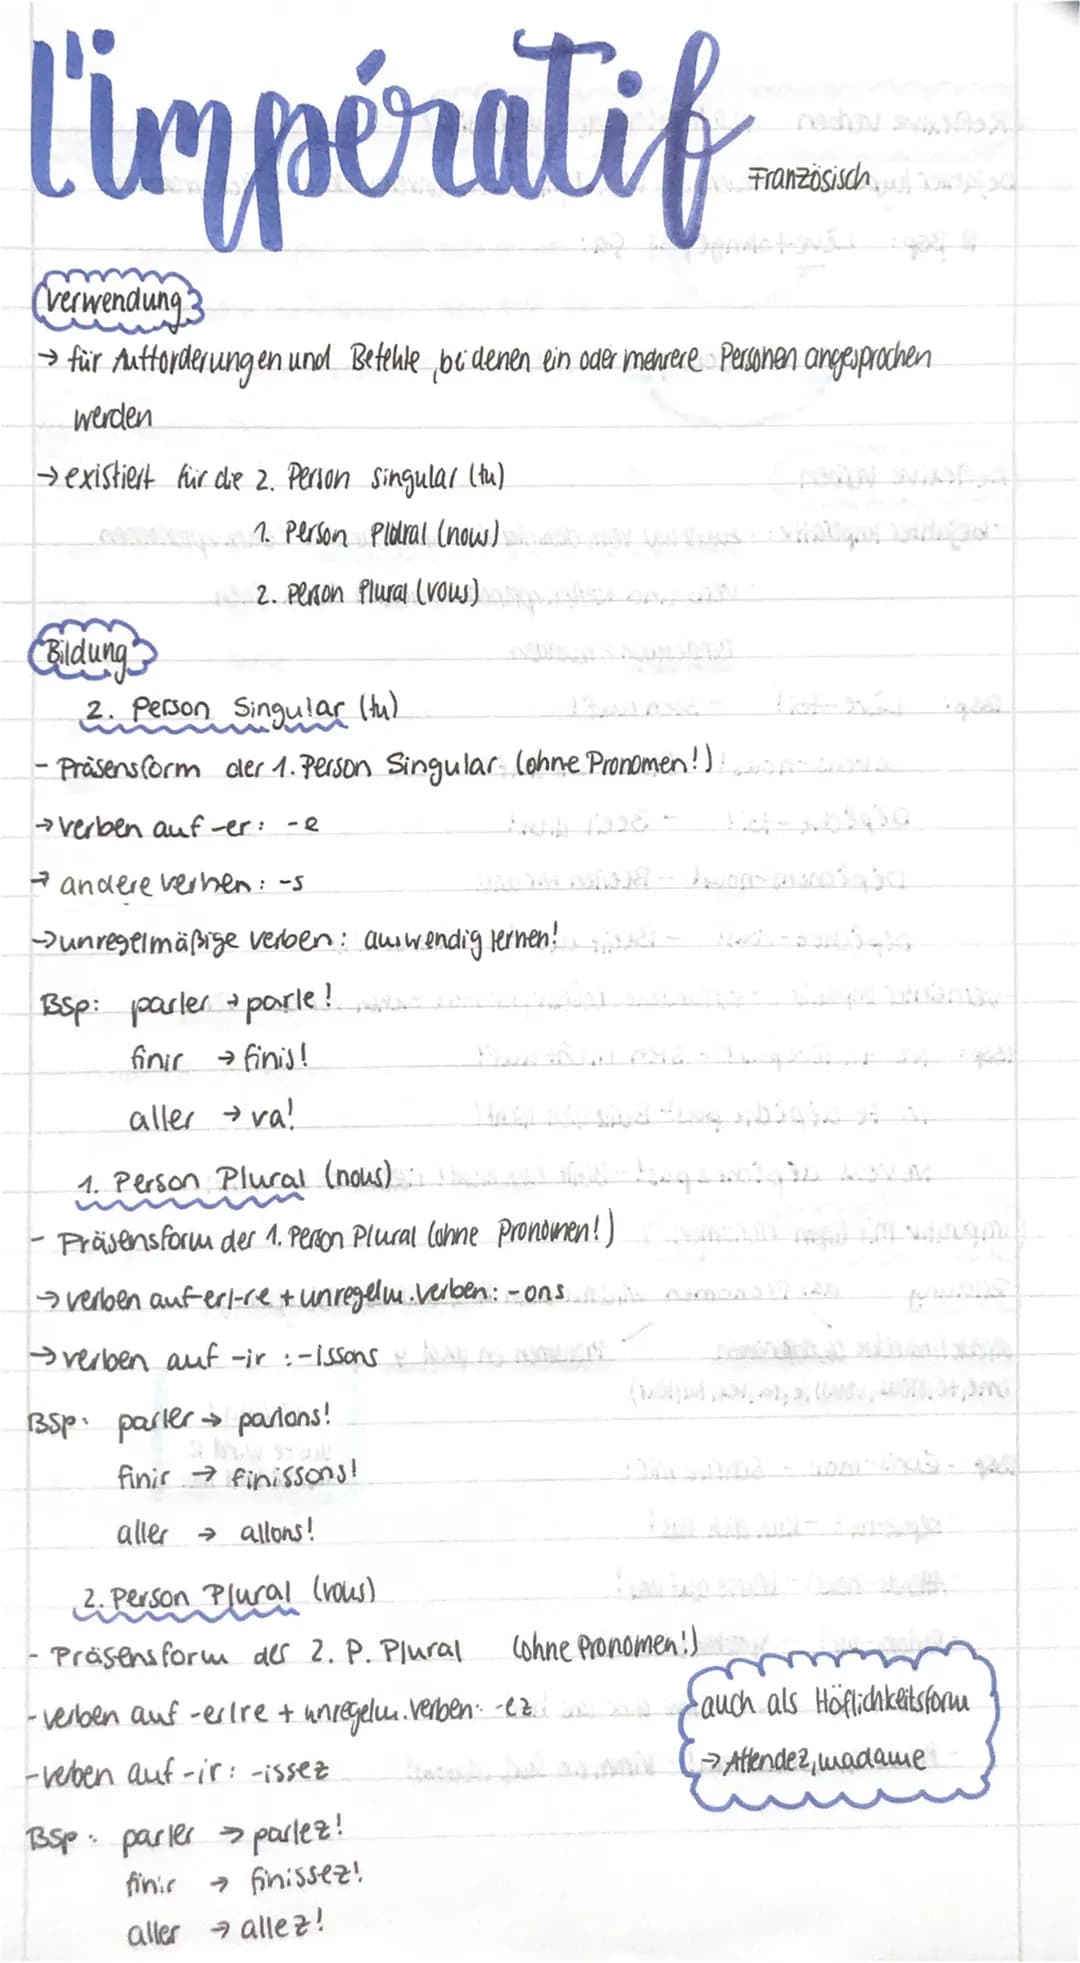 l'impératif
Französisch
Verwendung
→ für Aufforderungen und Befehle, bei denen ein oder mehrere Personen angesprochen
werden
→ existiert für die 2. Person Singular (tu)
1. Person Plural (nous)
2. Person Plural (vous)
Bildung
2. Person Singular (tu)
- Präsensform der 1. Person Singular (ohne Pronomen!)
→ verben auf -er: -e
→ andere verben: -s
→ unregelmäßige verben: auswendig lernen!
BSp: parler → parle!
finir → finis!
aller → va!
1. Person Plural (nous)
- Präsensform der 1. Person Plural (ohne Pronomen!)
→ verben auf -er/-re + unregelm. verben: -ons
→ verben auf -ir: -issons
BSp: parler → parlons!
finir → finissons!
aller → allons!
2. Person Plural (vous)
- Präsensform der 2. P. Plural (ohne Pronomen!)
- verben auf -er/re + unregelm. verben: -ez
- verben auf -ir: -issez
auch als Höflichkeitsform
→ Attendez, madame
BSp: parler → parlez!
finir → finissez!
aller → allez!